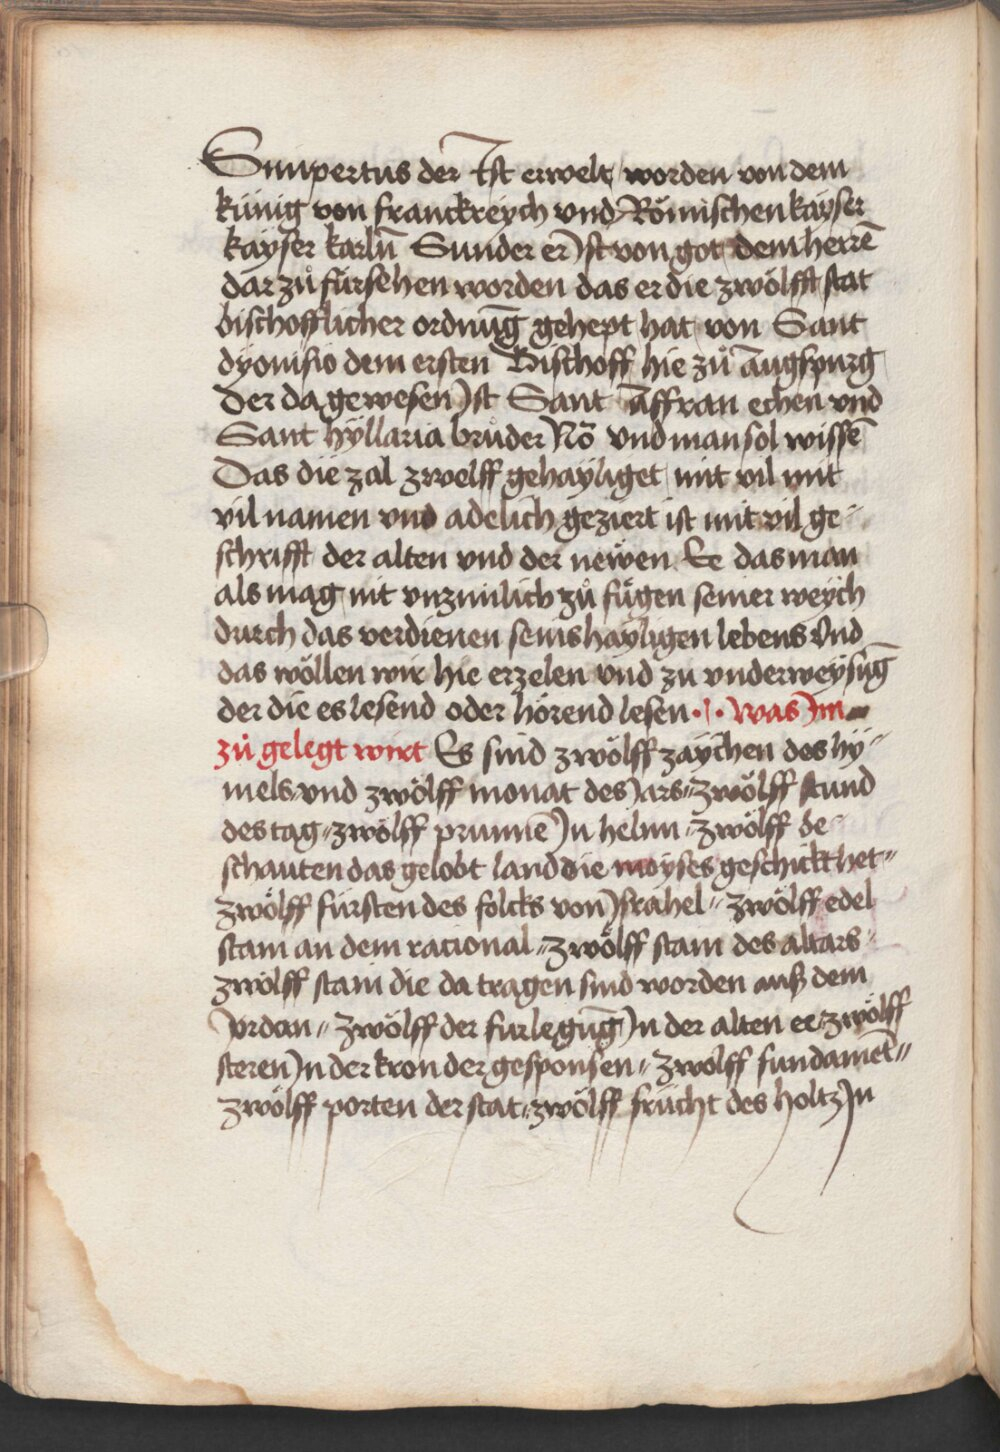 Simpertus der Ist erwelt worden von dem
künig von franckreych vnd Römischen kayser
kayser karlū Sunder er Ist von got dem herrē
dar zů fürsehen worden das er die zwölfft stat
bischofflicher ordnūg gehept hat von Sant
dyonisio dem ersten Bischoff hie zů augspurg
Der da gewesen Ist Sant affran echen vnd
Sant hyllaria brůder Nō vnd man sol wissē
Das die zal zwelff gehayliget mit vil mit
vil namen vnd adelich geziert ist mit vil ge⸗
schrifft der alten vnd der newen Ee das man
als mag nit vnzimlich zů fügen seiner weych
durch das verdienen seins hayligen lebens Vnd
das wöllen wir hie erzelen vnd zu vnderweysūg
der die es lesend oder hörend lesen · was Im
zů gelegt wirt Es sind zwölff zaychen des hy⸗
mels vnd zwölff monat des Iars zwölff stund
des tag zwölff prunnē In helim zwölff be⸗
schauten das gelobt land die moyses geschickt het
zwölff fürsten des folcks von Israhel zwölff edel
stain an dem racional zwölff stain des altars
zwölff stain die da tragen sind worden auß dem
Iordan zwölff der furlegūg In der alten ee zwölff
steren In der kron der gesponsen zwölff fundamēt
zwölff porten der stat zwölff frücht des holtz In